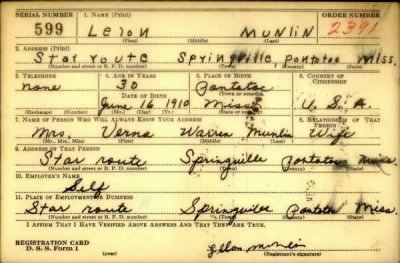 SERIAL NUMBER 1. NAME (Print) ORDER NUMBER
599 Leron Munlin 2391
(First) (Middle) (Last)
2. ADDRESS (Print)
Star route Springville Pontotoc Miss.
(Number and street or R. F. D. number) (Town) (County) (State)
3. TELEPHONE 4. AGE IN YEARS 5. PLACE OF BIRTH 6. COUNTRY OF CITIZENSHIP
none 30 Pontotoc
DATE OF BIRTH (Town or county)
June 16 1910 Miss U. S. A.
(Exchange) (Number) (Mo.) (Day) (Yr.) (State or country)
7. NAME OF PERSON WHO WILL ALWAYS KNOW YOUR ADDRESS 8. RELATIONSHIP OF THAT PERSON
Mrs. Verna Warren Munlin Wife
(Mr., Mrs., Miss) (First) (Middle) (Last)
9. ADDRESS OF THAT PERSON
Star route Springville Pontotoc Miss.
(Number and street or R. F. D. number) (Town) (County) (State)
10. EMPLOYER'S NAME
Self
11. PLACE OF EMPLOYMENT OR BUSINESS
Star route Springville Pontotoc Miss.
(Number and street or R. F. D. number) (Town) (County) (State)
I AFFIRM THAT I HAVE VERIFIED ABOVE ANSWERS AND THAT THEY ARE TRUE.
REGISTRATION CARD
D. S. S. Form 1 (over) Munlin
(Registrant's signature)